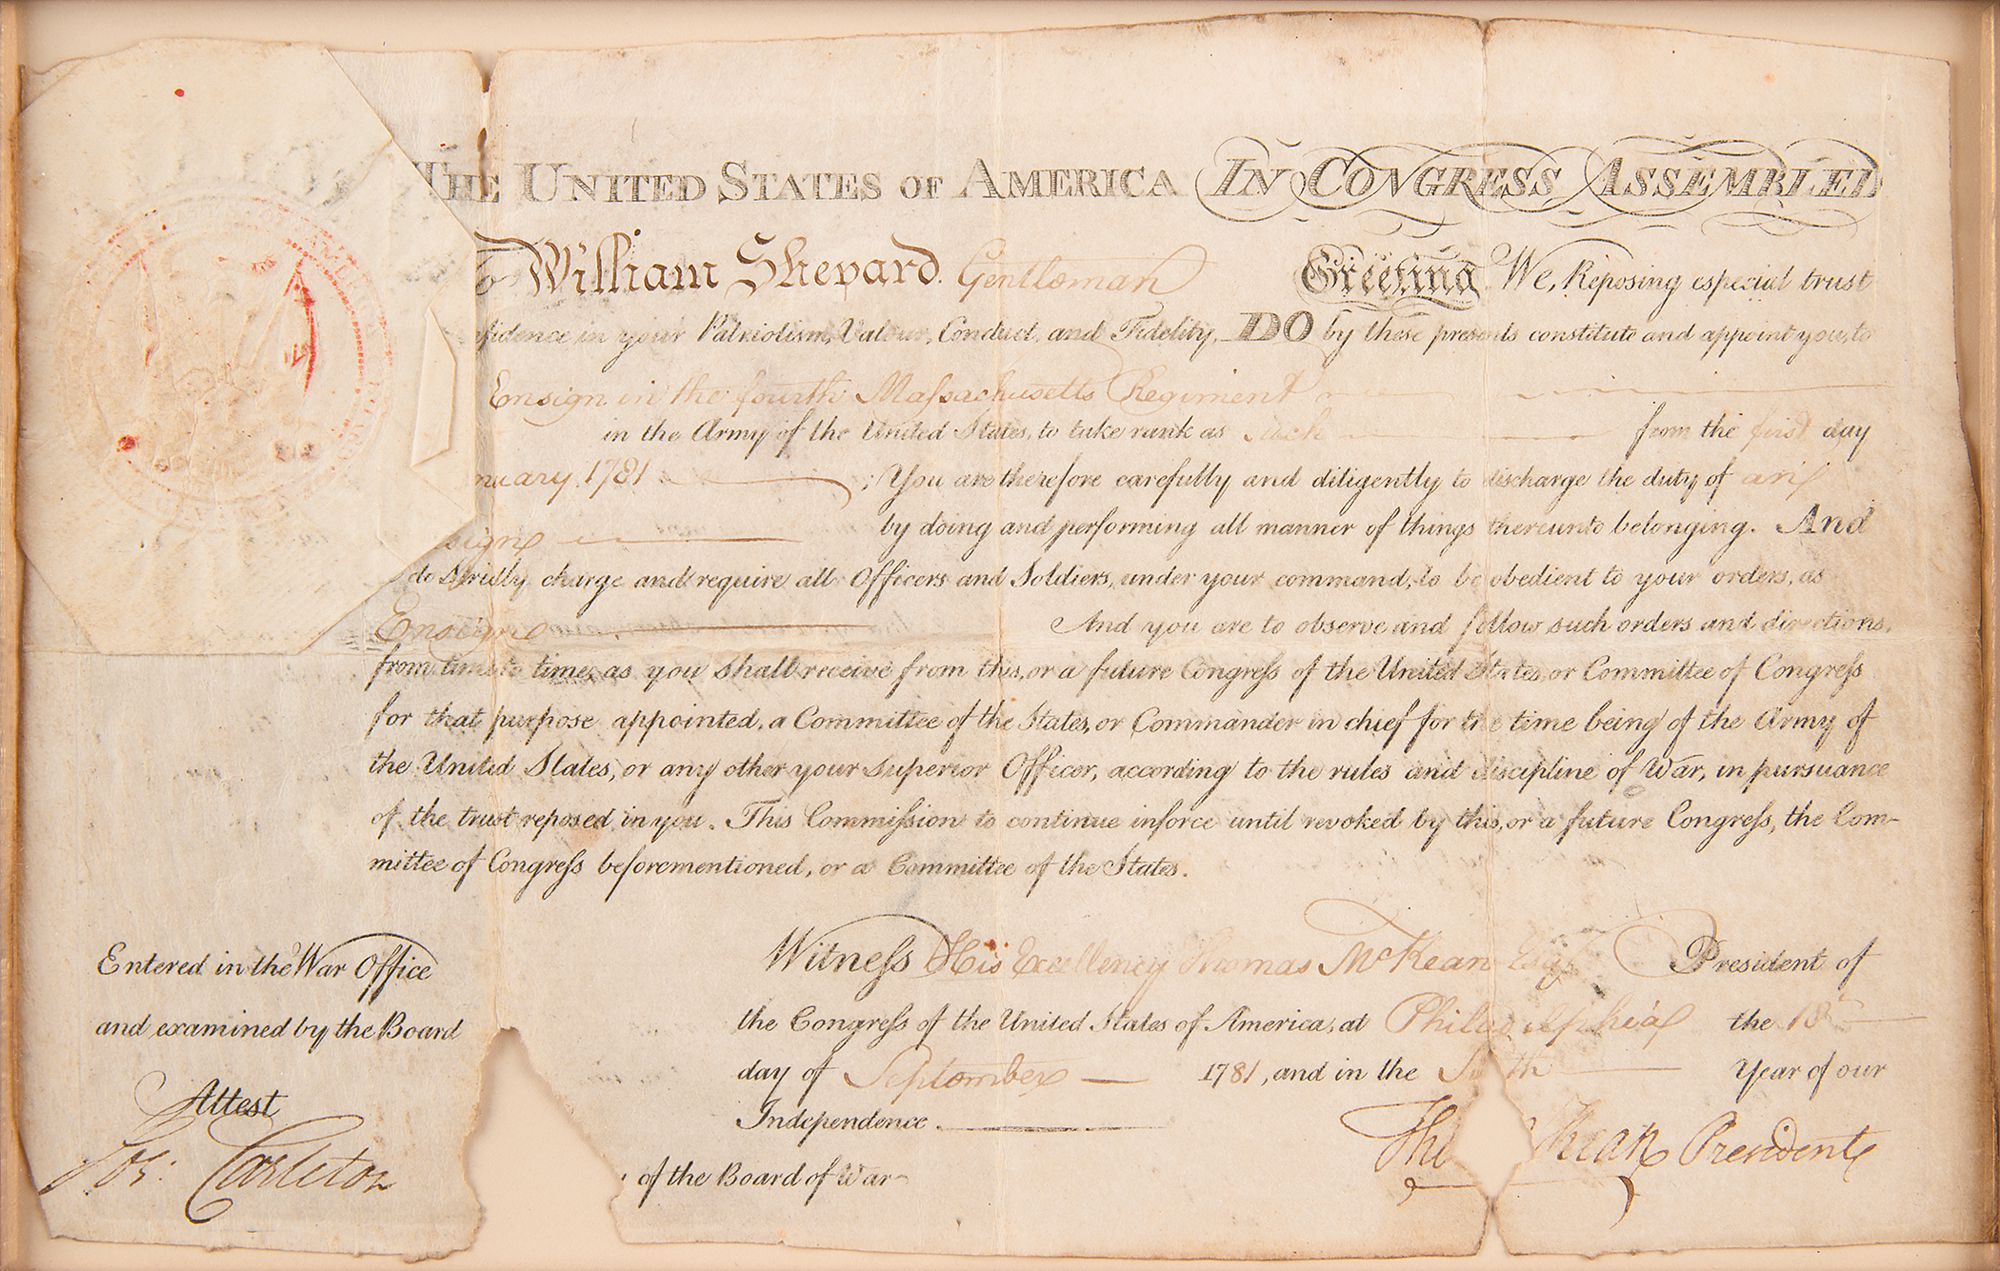 THE UNITED STATES OF AMERICA IN CONGRESS ASSEMBLED
To William Shepard. Gentleman Greeting We, Reposing especial trust
fidence in your Patriotism, Valour, Conduct, and Fidelity, DO by these presents constitute and appoint you, to
Ensign in the fourth Massachusetts Regiment
in the Army of the United States, to take rank as such from the first day
nuary 1781 ; You are therefore carefully and diligently to discharge the duty of an
sign by doing and performing all manner of things thereunto belonging. And
do strictly charge and require all Officers and Soldiers, under your command, to be obedient to your orders, as
Ensign And you are to observe and follow such orders and directions,
from time to time, as you shall receive from this, or a future Congress of the United States, or Committee of Congress
for that purpose appointed, a Committee of the States, or Commander in chief for the time being of the Army of
the United States, or any other your superior Officer, according to the rules and discipline of War, in pursuance
of the trust reposed in you. This Commission to continue in force until revoked by this, or a future Congress, the Com-
mittee of Congress beforementioned, or a Committee of the States.
Entered in the War Office
and examined by the Board
Attest
Jos: Carleton
of the Board of War
Witness His Excellency Thomas McKean Esqr President of
the Congress of the United States of America, at Philadelphia the 18
day of September 1781, and in the Sixth Year of our
Independence.
Tho Kean President